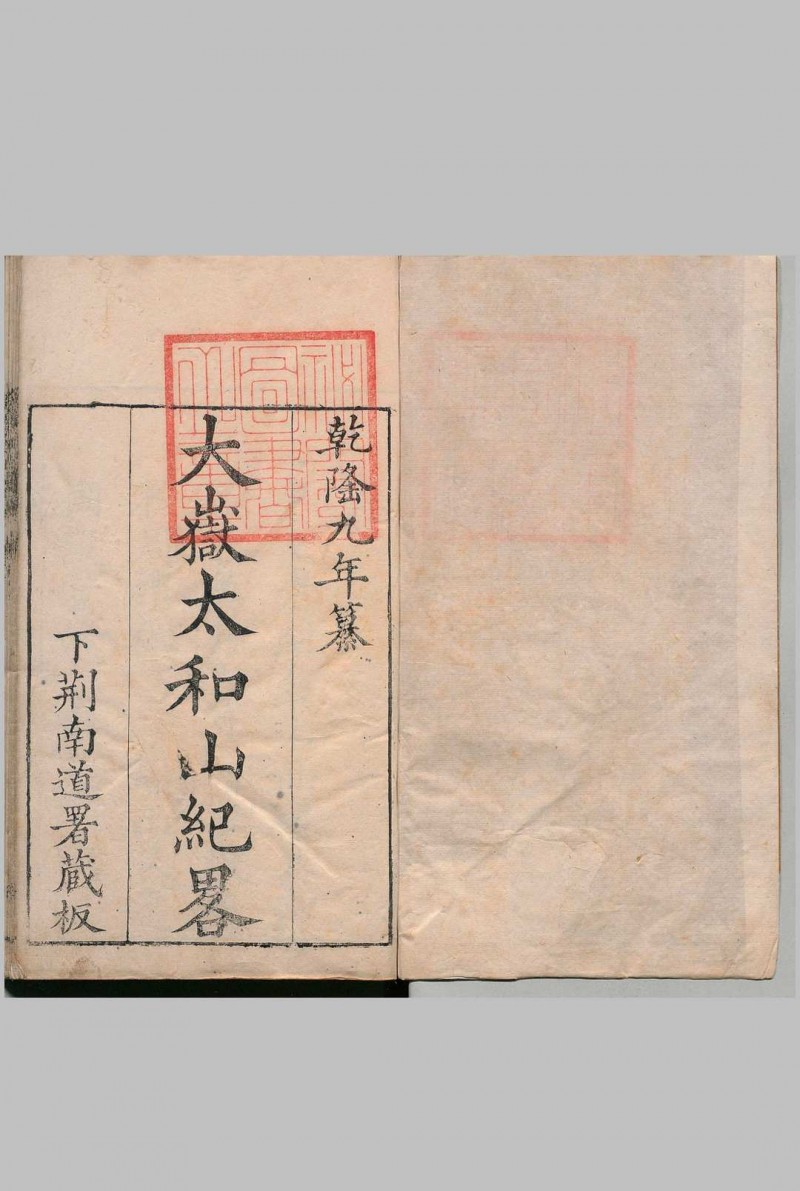 乾隆九年纂
大嶽太和山紀畧
下荆南道署蔵板